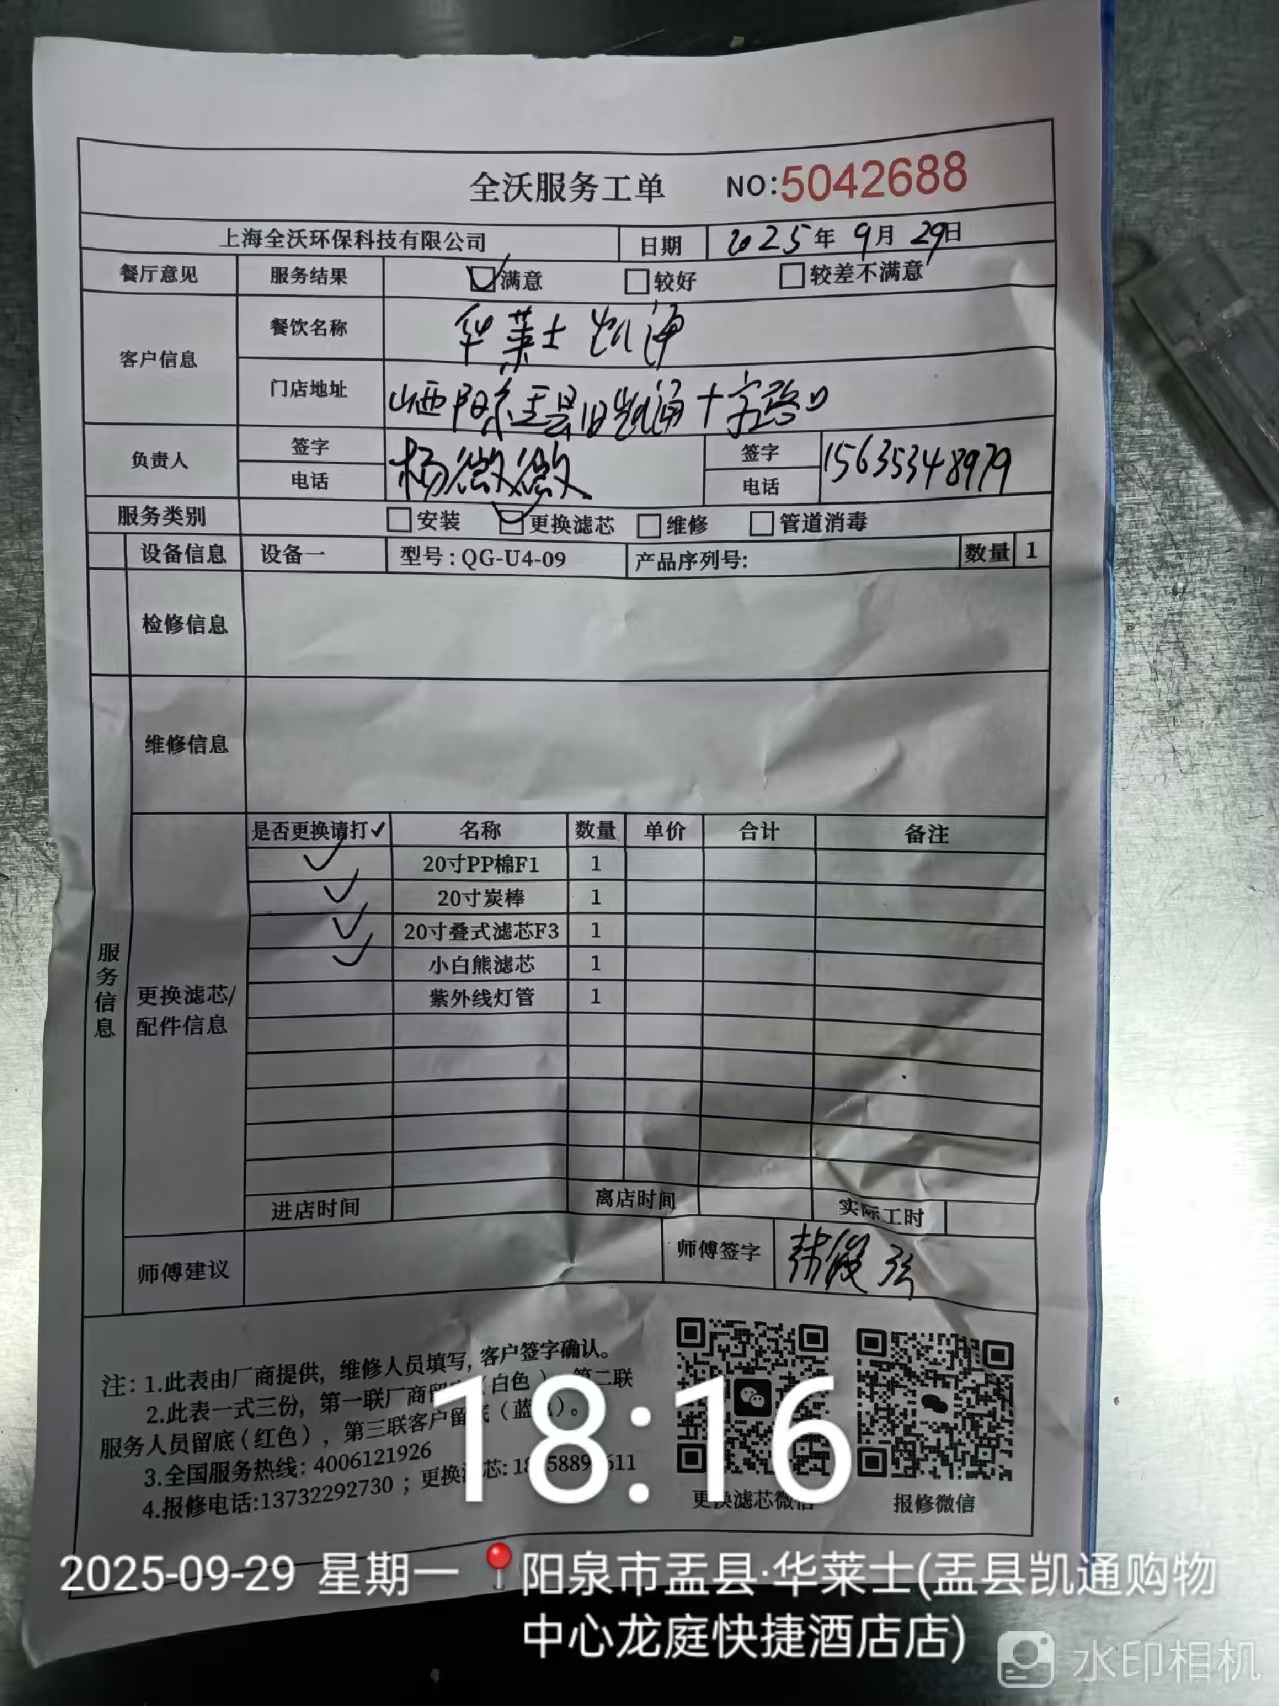 全沃服务工单 NO:5042688
上海全沃环保科技有限公司 日期 2025年9月29日
餐厅意见 服务结果 满意 较好 较差不满意
客户信息 餐饮名称 华莱士 凯通
门店地址 山西阳泉盂县旧凯通十字路口
负责人 签字 电话 杨微微 签字 电话 15635348979
服务类别 安装 更换滤芯 维修 管道消毒
设备信息 设备一 型号:QG-U4-09 产品序列号: 数量 1
检修信息
维修信息
服务信息
更换滤芯/配件信息
是否更换请打✓ 名称 数量 单价 合计 备注
✓ 20寸PP棉F1 1
✓ 20寸炭棒 1
✓ 20寸叠式滤芯F3 1
✓ 小白熊滤芯 1
紫外线灯管 1
进店时间 离店时间 实际工时
师傅建议 师傅签字
注: 1.此表由厂商提供, 维修人员填写, 客户签字确认。
2.此表一式三份, 第一联厂商留底(白色), 第二联
服务人员留底(红色), 第三联客户留底(蓝色)。
3.全国服务热线: 4006121926
4.报修电话:13732292730 ; 更换滤芯:
更换滤芯微信 报修微信
18:16
2025-09-29 星期一 阳泉市盂县·华莱士(盂县凯通购物
中心龙庭快捷酒店店)
水印相机